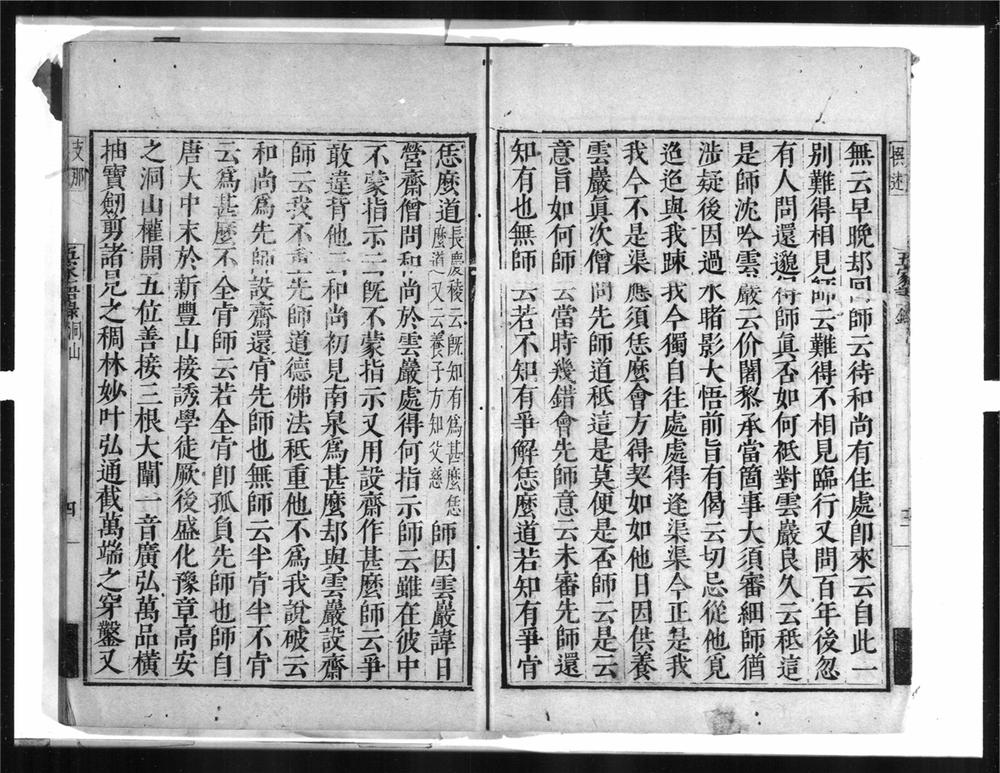 無云早晚却回師云待和尚有住處即來云自此一
別難得相見師云難得不相見臨行又問百年後忽
有人問還邈得師真否如何祗對雲巖良久云秪這
是師沈吟雲巖云价闍黎承當箇事大須審細師猶
涉疑後因過水睹影大悟前旨有偈云切忌從他覓
迢迢與我踈我今獨自往處處得逢渠渠今正是我
我今不是渠應須恁麼會方得契如如他日因供養
雲巖真次僧問先師道秪這是莫便是否師云是云
意旨如何師云當時幾錯會先師意云未審先師還
知有也無師云若不知有爭解恁麼道若知有爭肯
恁麼道長慶稜云既知有為甚麼恁麼道又云養子方知父慈師因雲巖諱日
營齋僧問和尚於雲巖處得何指示師云雖在彼中
不蒙指示云既不蒙指示又用設齋作甚麼師云爭
敢違背他云和尚初見南泉為甚麼却與雲巖設齋
師云我不重先師道德佛法秪重他不為我說破云
和尚為先師設齋還肯先師也無師云半肯半不肯
云為甚麼不全肯師云若全肯即孤負先師也師自
唐大中末於新豐山接誘學徒厥後盛化豫章高安
之洞山權開五位善接三根大闡一音廣弘萬品橫
抽寶劒剪諸見之稠林妙叶弘通截萬端之穿鑿又
支那
五家語錄 洞山
四